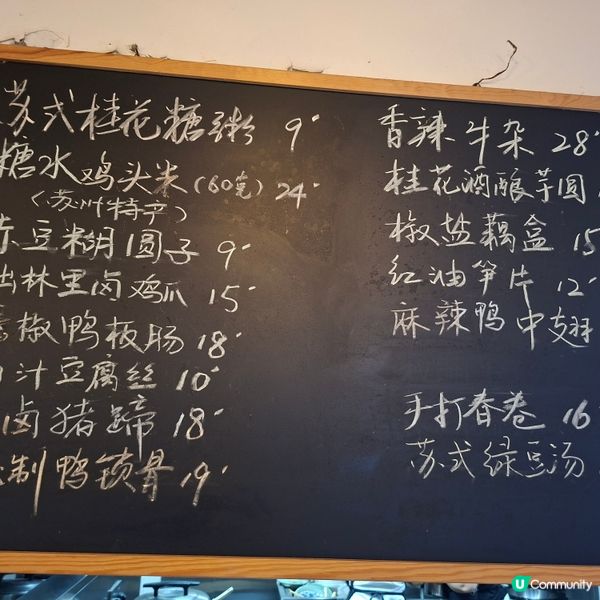 苏式桂花糖粥 9
糖水鸡头米(60克) 24
(苏州特产)
豆糊圆子 9
林里卤鸡爪 15
椒鸭板肠 18
汁豆腐丝 10
卤猪蹄 18
制鸭锁骨 19
香辣牛杂 28
桂花酒酿芋圆
椒盐藕盒 15
红油笋片 12
麻辣鸭中翅
手打春卷 16
苏式绿豆汤
U Community